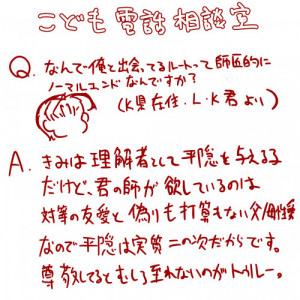 こども電話相談室
Q. なんで俺と出会ってるルートって師匠的に
ノーマルエンドなんですか?
(K県在住・L・K君より)
A. きみは理解者として平穏を与えるる
だけど、君の師が欲しているのは
対等の友愛と偽りも打算もない父母性愛
なので平穏は実質二の次だからです。
尊敬してるとむしろ至れないのがトゥルー。